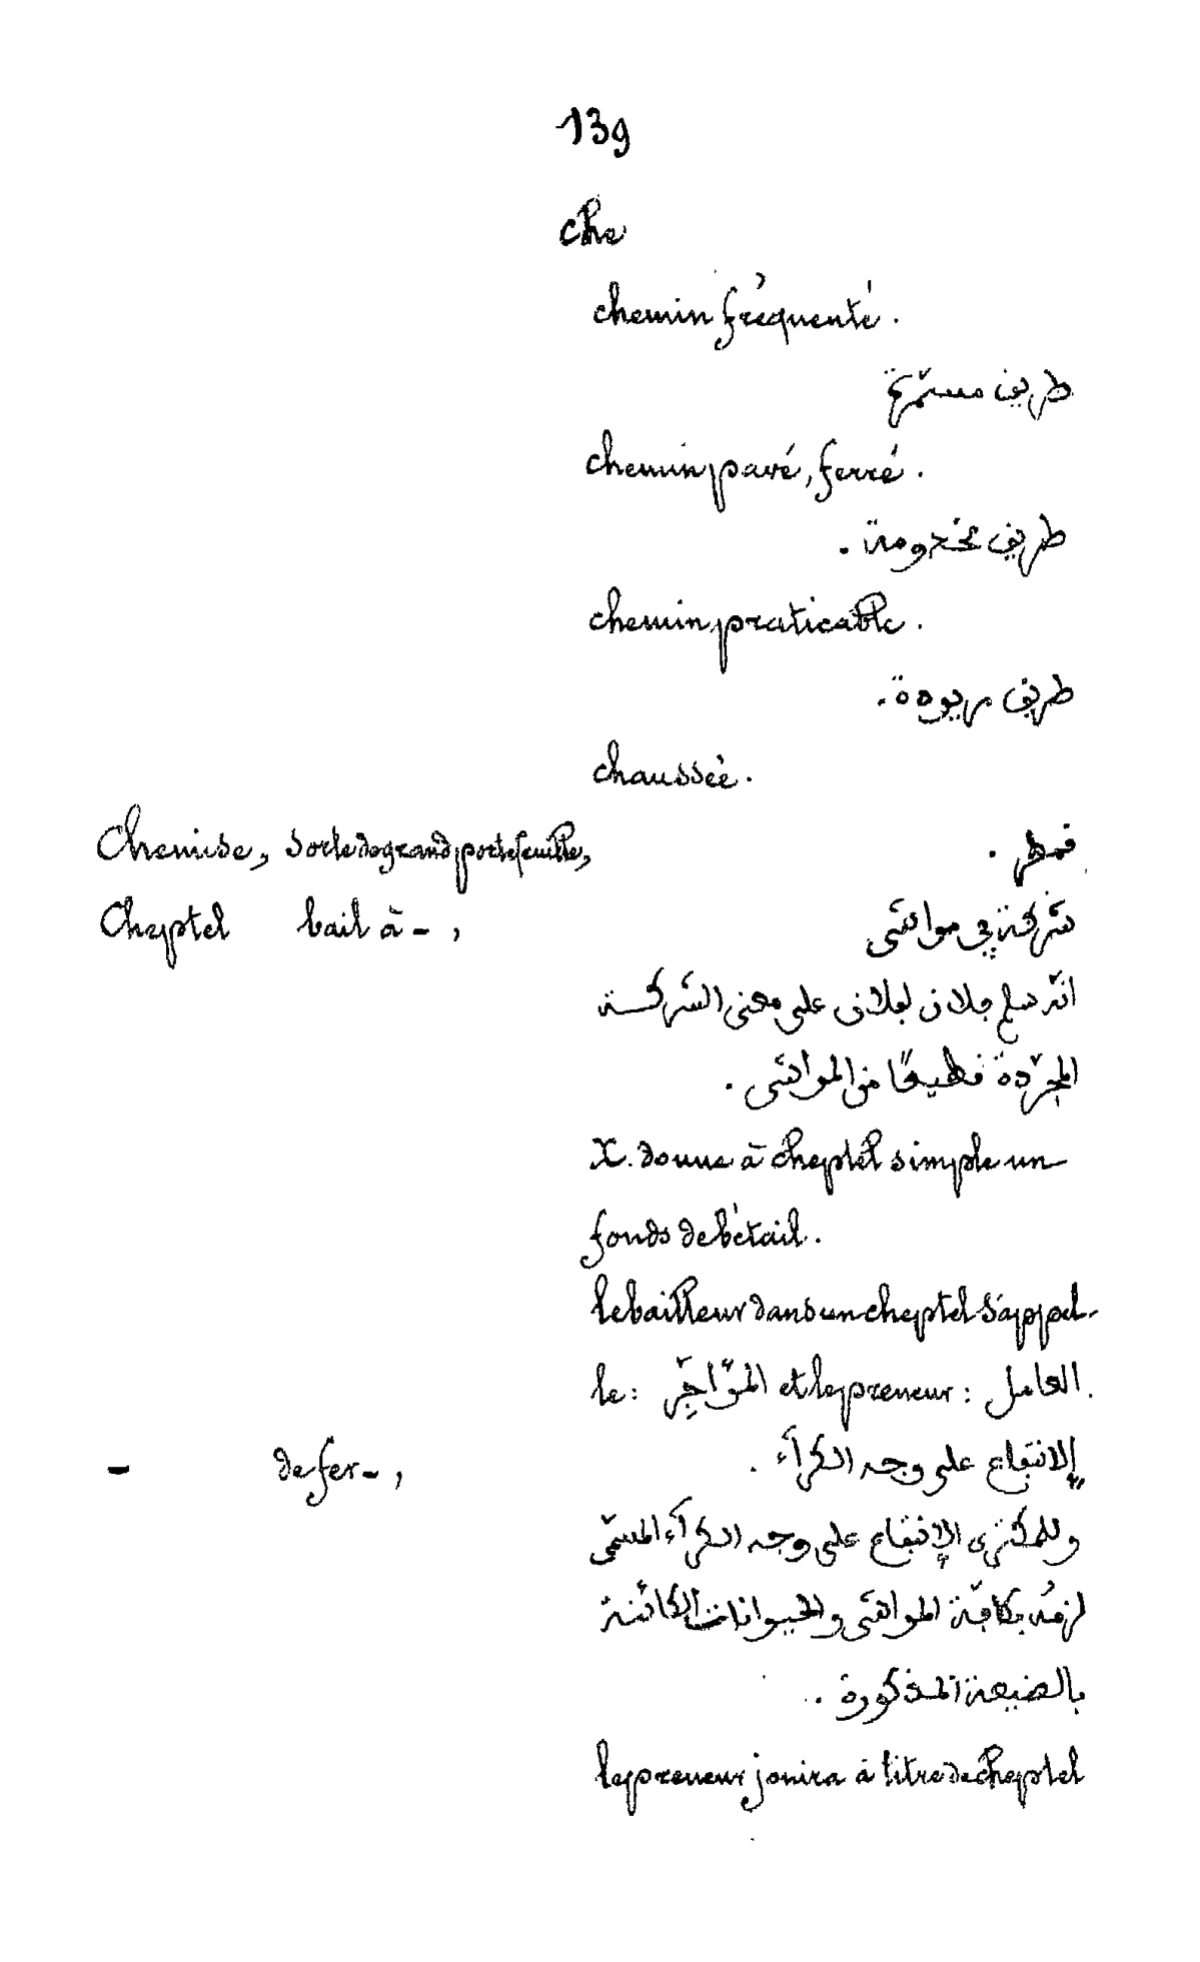 139
che
chemin fréquenté.
طريق مستمرّة
chemin pavé, ferré.
طريق مخدومة.
chemin praticable.
طريق
chaussée.
Chemise, sorte de grand portefeuille, قمطر.
Cheptel bail à -, شركة في مواشي
انّه سلم فلان لفلان على معنى الشركة
المجرّدة قطيعًا من المواشي.
X. donne à cheptel simple un
fonds de bétail.
le bailleur dans un cheptel s'appel-
le: المؤاجِر et le preneur: العامل.
- de fer -, الانتفاع على وجه الكرآء.
وللمكتري الانتفاع على وجه الكرآء المسمّى
بكافّة المواشي والحيوانات الكائنة
بالضيعة المذكورة.
le preneur jouira à titre de cheptel